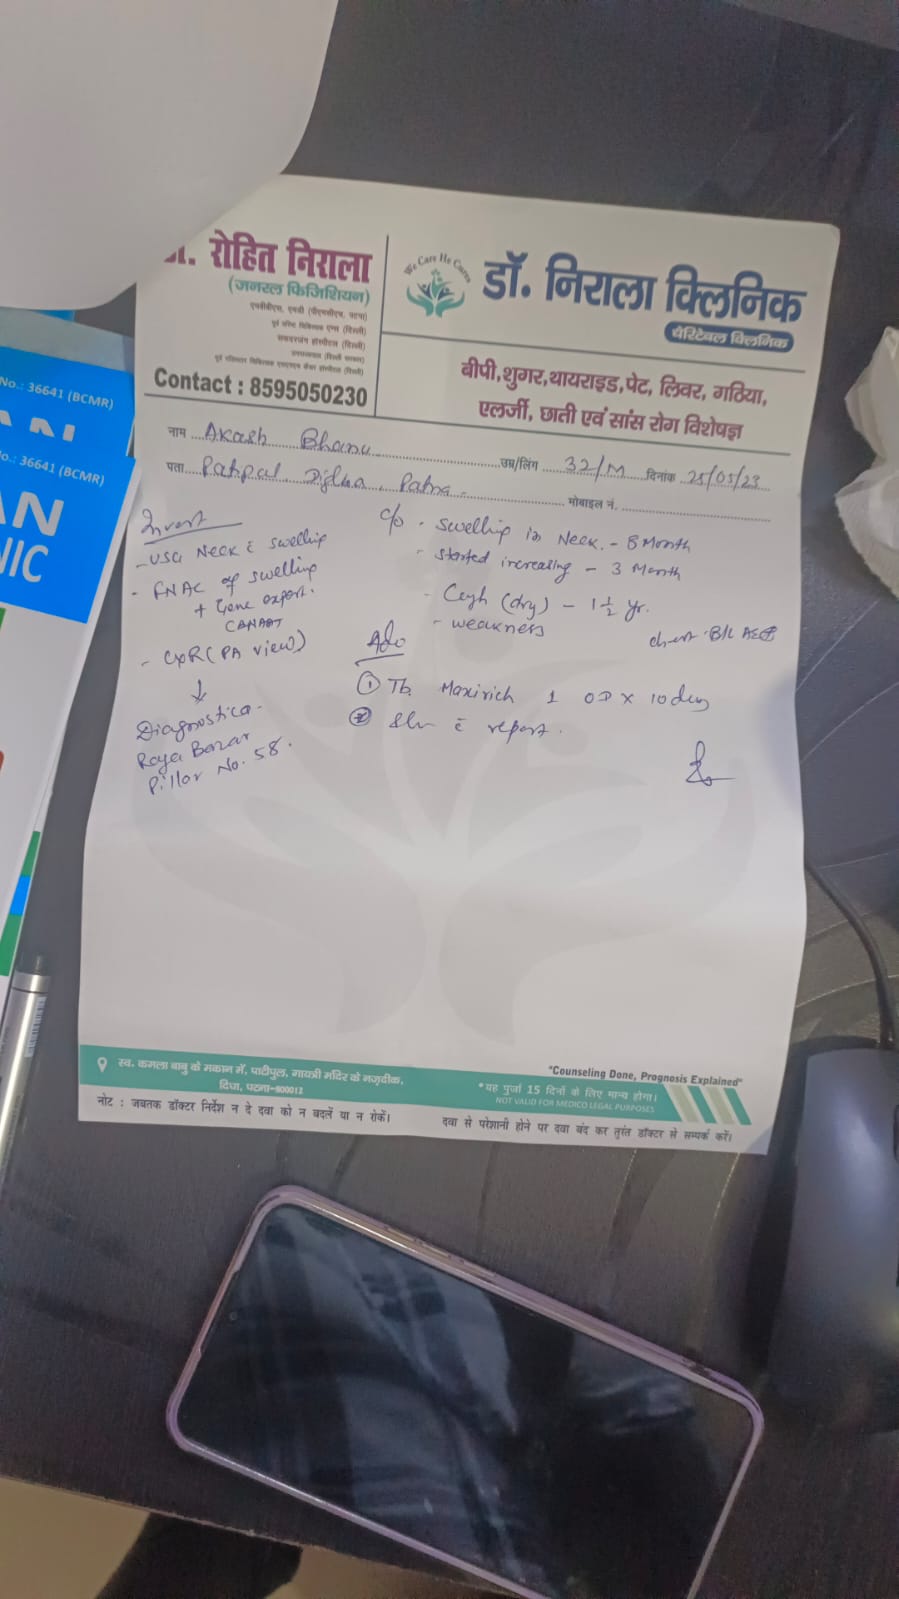 No.: 36641 (BCMR)
No.: 36641 (BCMR)
AN
NIC
. रोहित निराला
(जनरल फिजिशियन)
एमबीबीएस, एमडी (पीएमसीएच, पटना)
पूर्व वरिष्ठ चिकित्सक एम्स (दिल्ली)
सफदरजंग हॉस्पीटल (दिल्ली)
Contact : 8595050230
We Care He Cures
डॉ. निराला क्लिनिक
चैरिटेबल क्लिनिक
बीपी,शुगर,थायराइड,पेट, लिवर, गठिया,
एलर्जी, छाती एवं सांस रोग विशेषज्ञ
नाम Akash Bhanu उम्र/लिंग 32/M दिनांक 25/05/23
पता Patipul Digha, Patna. मोबाइल नं.
Invest
- USG Neck c̄ swelling
- FNAC of swelling
+ Gene expert.
CBNAAT
- CXR (PA view)
↓
Diagnostica.
Raja Bazar
Pillar No. 58.
c/o - Swelling in Neck. - 8 Month
- Started increasing - 3 Month
- Cough (dry) - 1 1/2 yr.
- weakness
chest - B/L AE⊕
Adv
① Tb. Maxirich 1 OD x 10 days
② S/w c̄ report.
स्व. कमला बाबु के मकान में, पाटीपुल, गायत्री मंदिर के नज़दीक,
दिघा, पटना-800012
"Counseling Done, Prognosis Explained"
*यह पुर्जा 15 दिनों के लिए मान्य होगा।
NOT VALID FOR MEDICO LEGAL PURPOSES
नोट : जबतक डॉक्टर निर्देश न दे दवा को न बदलें या न रोकें।
दवा से परेशानी होने पर दवा बंद कर तुरंत डॉक्टर से सम्पर्क करें।